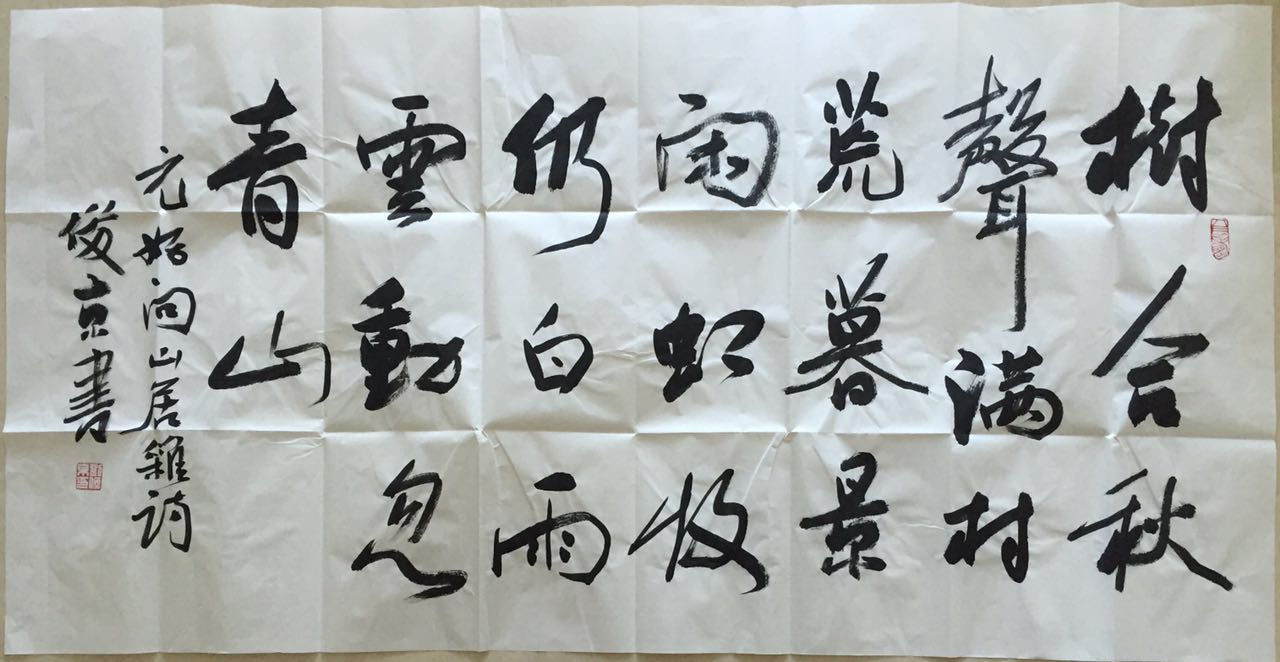 樹合秋
聲满村
荒暮景
閑虹收
仍白雨
雲動忽
青山
元好问山居雜诗
俊京書